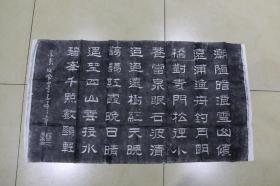 潮隨暗浪雪山傾
遠浦漁舟釣月明
橋對寺門松徑小
巷當泉眼石波清
迢迢遠樹江天曉
藹藹紅霞晚日晴
遙望四山雲接水
碧峯千點數鷗輕